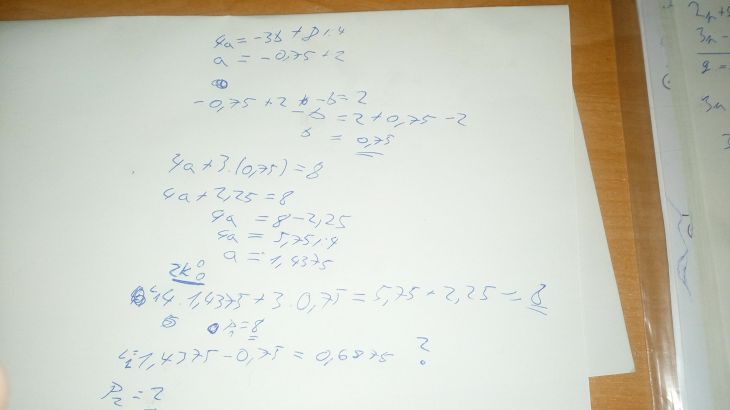 4a = -3b + 8 : 4
a = -0,75 + 2
-0,75 + 2 - b = 2
-b = 2 + 0,75 - 2
b = 0,75
4a + 3 . (0,75) = 8
4a + 2,25 = 8
4a = 8 - 2,25
4a = 5,75 : 4
a = 1,4375
zk:
4 . 1,4375 + 3 . 0,75 = 5,75 + 2,25 = 8
P = 8
1,4375 - 0,75 = 0,6875 ?
P2 = 2
2n +
3n -
9 =
3n
3